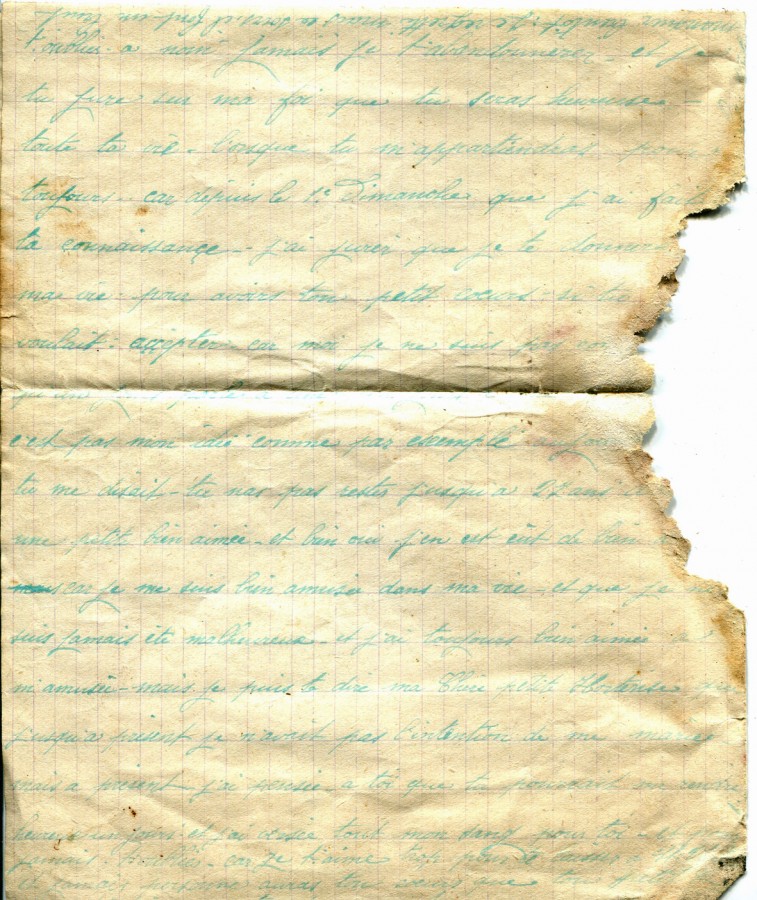 t'oublier a noin jamais je t'abandonnerer - et je
tu jure sur ma foi que tu seras heureuse -
toute ta vie - lorsque tu m'appartiendras pour
toujours - car depuis le 1e Dimanche que j'ai fait
ta connaissance - j'ai jurer que je te donner
ma vie - pour avoirs ton petit coeurs si tu
voulait - accépter car moi je ne suis pas
c'est pas mon idée comme par esemple
tu me disait - tu nas pas restes jusqu'a 22 ans
une petite bien aimée - et bien oui j'en est eût de bien
car je me suis bien amusée dans ma vie - et que je ne
suis jamais étè malheureux - et j'ai toujours bien aimée a
m'amusée - mais je puis te dire ma Chère petite Hortense que
jusqu'a présent je n'avait pas l'intention de me marier
mais a présent j'ai pensée a toi que tu pourrait me rendre
heureux un jour et j'ai versée tout mon sang pour toi - et
jamais t'oublier - car je t'aime trop pour te
et jamais personne auras ton coeurs que